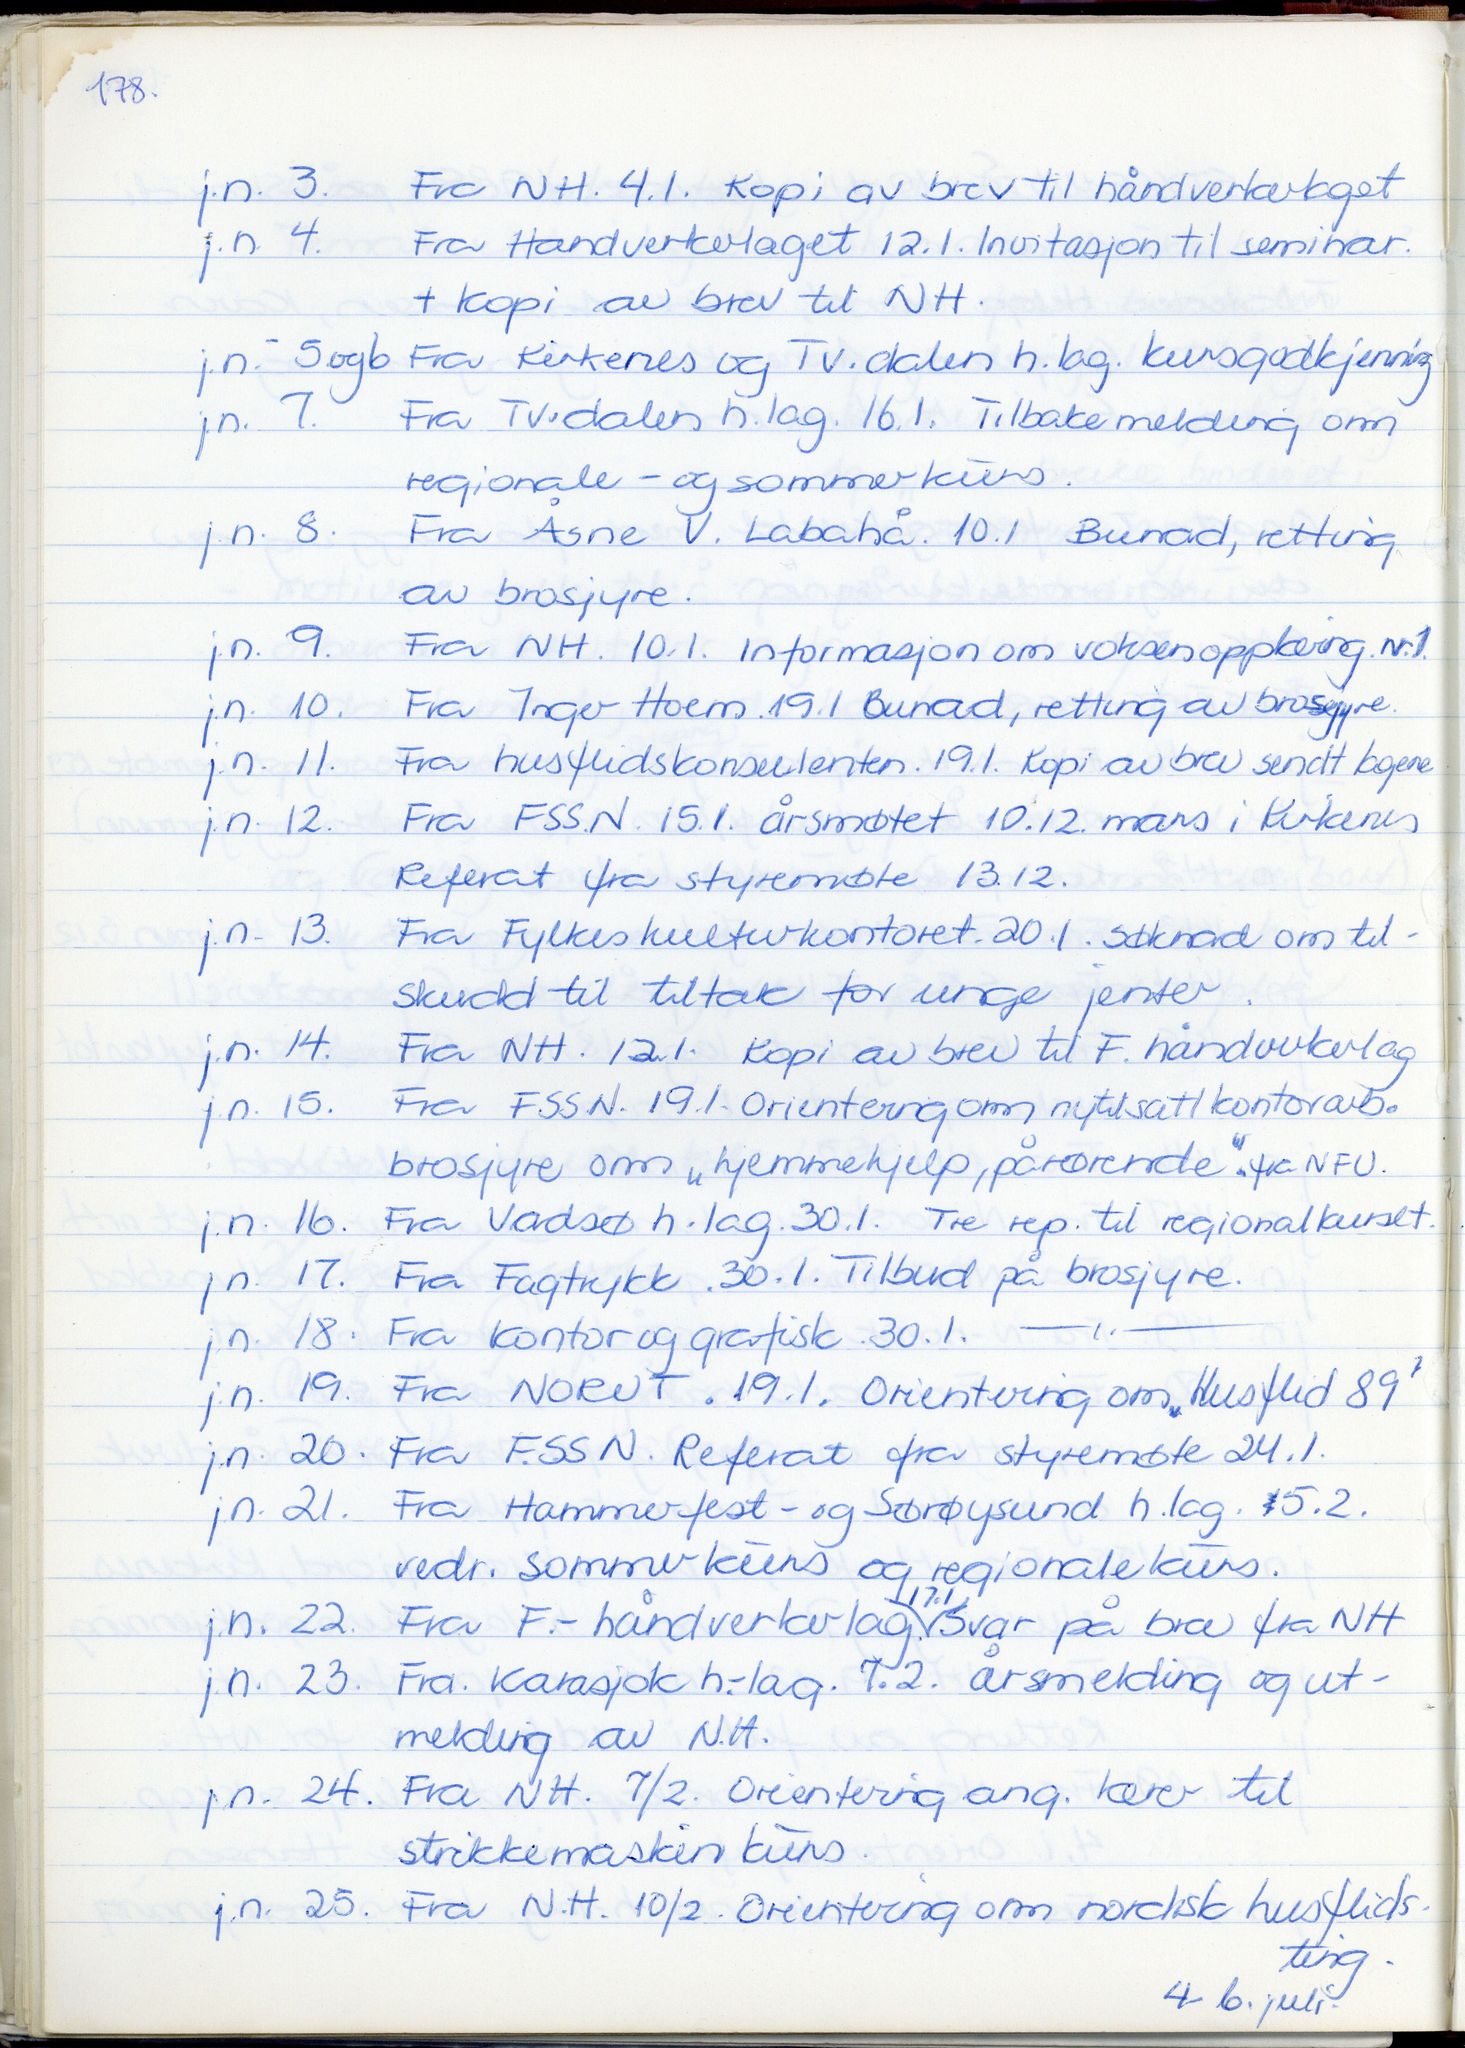 178.
j.n. 3. Fra NH. 4.1. Kopi av brev til håndverkerlaget
j.n. 4. Fra Handverkerlaget 12.1. Invitasjon til seminar.
+ kopi av brev til NH.
j.n. 5 og 6 Fra Kirkenes og Tv.dalen h.lag. kursgodkjenning
j.n. 7. Fra Tv.dalen h.lag. 16.1. Tilbakemelding om
regionale - og sommerkurs.
j.n. 8. Fra Åsne V. Labahå. 10.1 Bunad, retting
av brosjyre.
j.n. 9. Fra NH. 10.1. Informasjon om voksenopplæring. Nr.1.
j.n. 10. Fra Inger Hoem. 19.1 Bunad, retting av brosjyre.
j.n. 11. Fra husflidskonsulenten. 19.1. Kopi av brev sendt lagene
j.n. 12. Fra FSS.N. 15.1. årsmøtet 10.12. mars i Kirkenes
Referat fra styremøte 13.12.
j.n. 13. Fra Fylkeskulturkontoret. 20.1. søknad om til-
skudd til tiltak for unge jenter.
j.n. 14. Fra NH. 12.1. Kopi av brev til F. håndverkerlag
j.n. 15. Fra F.SS.N. 19.1. Orientering om nytilsatt kontorarb.
brosjyre om „hjemmehjelp, pårørende". fra NFU.
j.n. 16. Fra Vadsø h.lag. 30.1. Tre rep. til regionalkurset.
j.n. 17. Fra Fagtrykk. 30.1. Tilbud på brosjyre.
j.n. 18. Fra kontor og grafisk. 30.1. —"—
j.n. 19. Fra NORUT. 19.1. Orientering om „Husflid 89"
j.n. 20. Fra F.SSN. Referat fra styremøte 24.1.
j.n. 21. Fra Hammerfest - og Sørøysund h.lag. 5.2.
vedr. sommerkurs og regionale kurs.
j.n. 22. Fra F.- håndverkerlag. 17.1. Svar på brev fra NH
j.n. 23. Fra. Karasjok h.-lag. 7.2. årsmelding og ut-
melding av N.H.
j.n. 24. Fra NH. 7/2. Orientering ang. lærer til
strikkemaskin kurs.
j.n. 25. Fra N.H. 10/2. Orientering om nordisk husflids-
ting.
4-6. juli.